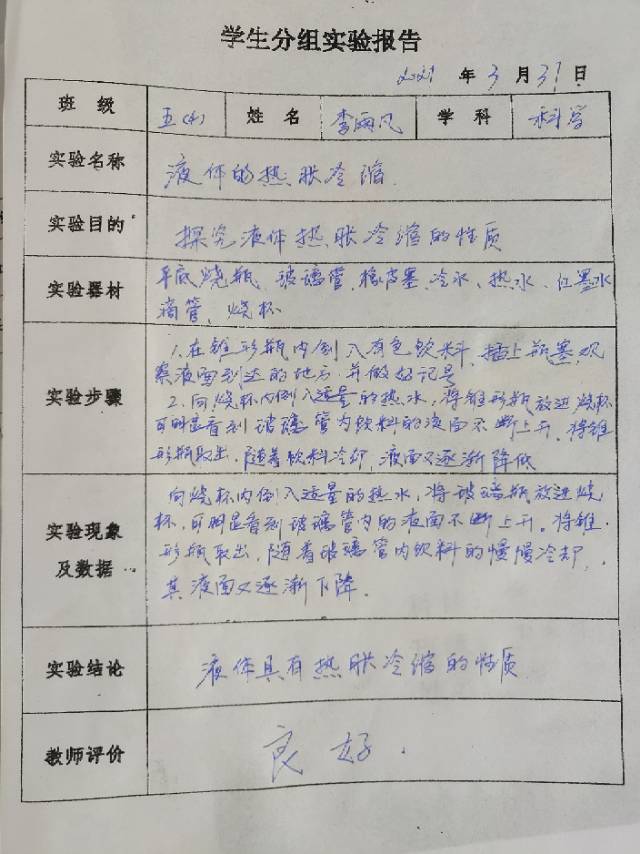 学生分组实验报告
2021 年 3 月 31 日
班 级 五(4) 姓 名 李雨凡 学 科 科学
实验名称 液体的热胀冷缩
实验目的 探究液体热胀冷缩的性质
实验器材 平底烧瓶、玻璃管、橡皮塞、冷水、热水、红墨水
滴管、烧杯
实验步骤 1.在锥形瓶内倒入有色饮料,插上瓶塞,观
察液面到达的地方,并做好记号
2.向烧杯内倒入适量的热水,将锥形瓶放进烧杯
可明显看到玻璃管内饮料的液面不断上升,将锥
形瓶取出,随着饮料冷却,液面又逐渐降低
实验现象及数据 向烧杯内倒入适量的热水,将玻璃瓶放进烧
杯,可明显看到玻璃管内的液面不断上升。将锥
形瓶取出,随着玻璃管内饮料的慢慢冷却,
其液面又逐渐下降.
实验结论 液体具有热胀冷缩的性质
教师评价 良好.